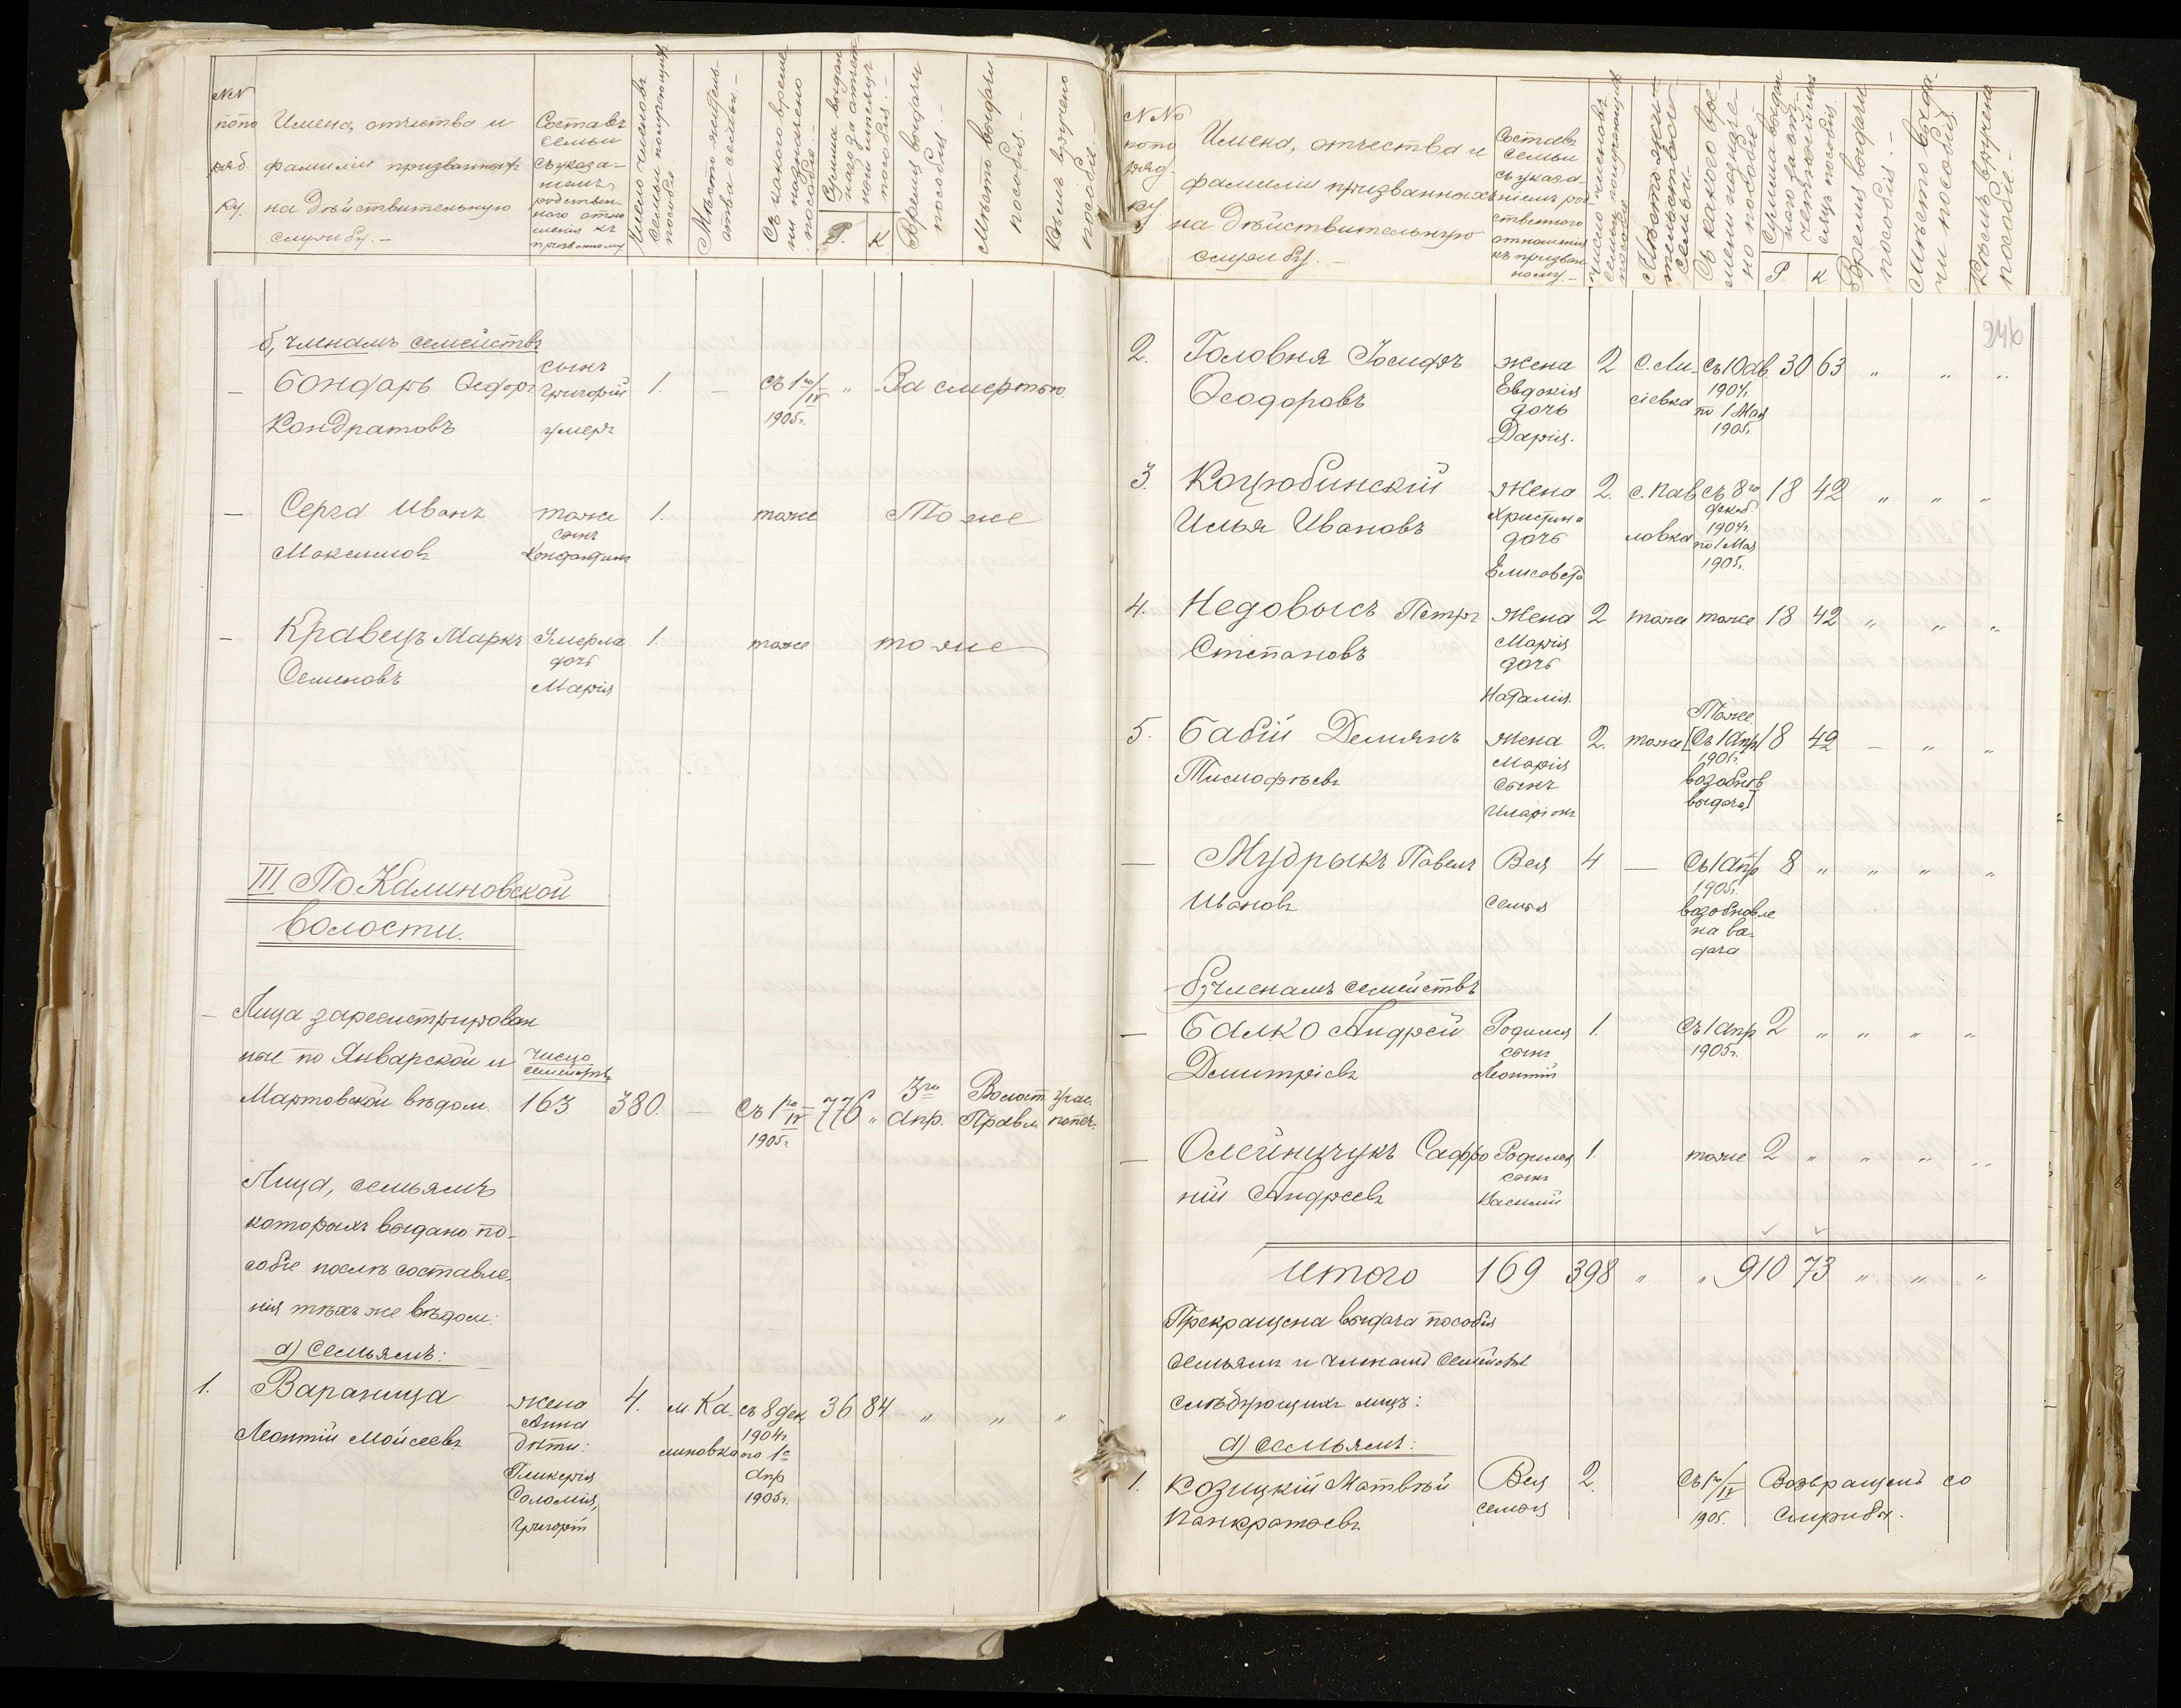 №№ по по ряд ку.
Имена, отчества и фамиліи призванныхъ на дѣйствительную службу. —
Составъ семьи съ указаніемъ родственного отношенія къ призванному
Число членовъ семьи получающихъ пособія
Мѣсто жительства семьи. —
Съ какого времени назначено пособіе. —
Сумма выданного за отчетный мѣсяцъ пособія. —
Р. К.
Время выдачи пособія. —
Мѣсто выдачи пособія. —
Кѣмъ вручено пособіе. —
б, членамъ семействъ
— Бондарь Ѳедоръ сынъ Григорій 1. — Съ 1го/IV „ „ За смертью.
Кондратовъ умеръ 1905г.
— Серга Иванъ тоже 1. тоже Тоже
Максимовъ сынъ Константинъ
— Кравецъ Маркъ Умерла 1. тоже тоже
Семеновъ дочь Марія
III По Калиновской
волости.
— Лица зарегистрирован
ные по Январской и Число семействъ
Мартовской вѣдом. 163 380. — Съ 1го/IV 1905г. 776 „ 3го Апр. Волост. Правл. Учас. попеч.
Лица, семьямъ
которыхъ выдано по-
собіе послѣ составле-
нія тѣхъ же вѣдом:
а) Семьямъ:
1. Вараница жена 4. м. Ка- съ 8 дек 36 84 „ „ „
Леонтій Мойсеевъ Анна дѣти: линовка 1904г. по 1е
Гликерія Апр
Соломія, 1905г.
Григорій
246
№№ по по ряд. ку
Имена, отчества и фамиліи призванныхъ на дѣйствительную службу. —
Составъ семьи съ указаніемъ родственного отношенія къ призванному. —
Число членовъ семьи получающихъ пособія
Мѣсто жительства семьи. —
Съ какого времени назначено пособіе
Сумма выданного за отчетный мѣсяцъ пособія.
Р. К
Время выдачи пособія. —
Мѣсто выдачи пособія.
Кѣмъ вручено пособіе. —
2. Головня Іосифъ жена 2 С. Ли- съ 10 дв. 30 63 „ „ „
Ѳеодоровъ Евдокія сіевка 1904г.
дочь по 1 Мая
Дарія. 1905г.
3. Коцюбинскій Жена 2. с. Пав съ 8го 18 42 „ „ „
Илья Ивановъ Христина ловка декаб. 1904г.
дочь по 1 Мая
Елисавета 1905г.
4. Недовысъ Петръ Жена 2 тоже тоже 18 42 „ „ „
Степановъ Марія
дочь
Наталія.
5. Бабій Демянъ жена 2. тоже Тоже. [Съ 1 апр 18 42 — „ „
Тимофѣевъ Марія 1905г.
сынъ возобнов
Иларіонъ выдача]
— Мудрыкъ Павелъ Вся 4 — Съ 1 апр 8 „ „ „ „
Ивановъ семья 1905г.
возобновле
на вы-
дача
б, членамъ семействъ
— Балко Андрей Родился 1. Съ 1 апр 2 „ „ „ „
Дмитріевъ сынъ Леонтій 1905г.
— Олейнчукъ Сафро Родился 1. тоже 2 „ „ „ „
ній Андреевъ сынъ Василій
Итого 169 398 „ „ 910 73 „ „ „
Прекращена выдача пособія
Семьямъ и членамъ семействъ
слѣдующихъ лицъ:
а) семьямъ:
1. Козицкій Матвѣй Вся 2. Съ 1го/IV Возвращенъ со
Панкратьевъ семья 1905. службы.